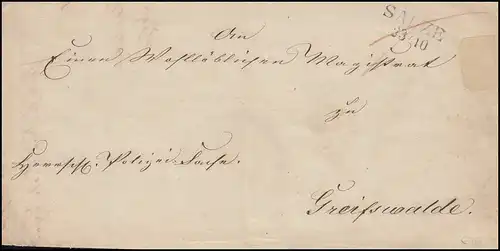 SALZE
23 10
An
Einen Wohllöblichen Magistrat
zu
Herrsch. Polizei-Sache.
Greifswalde.